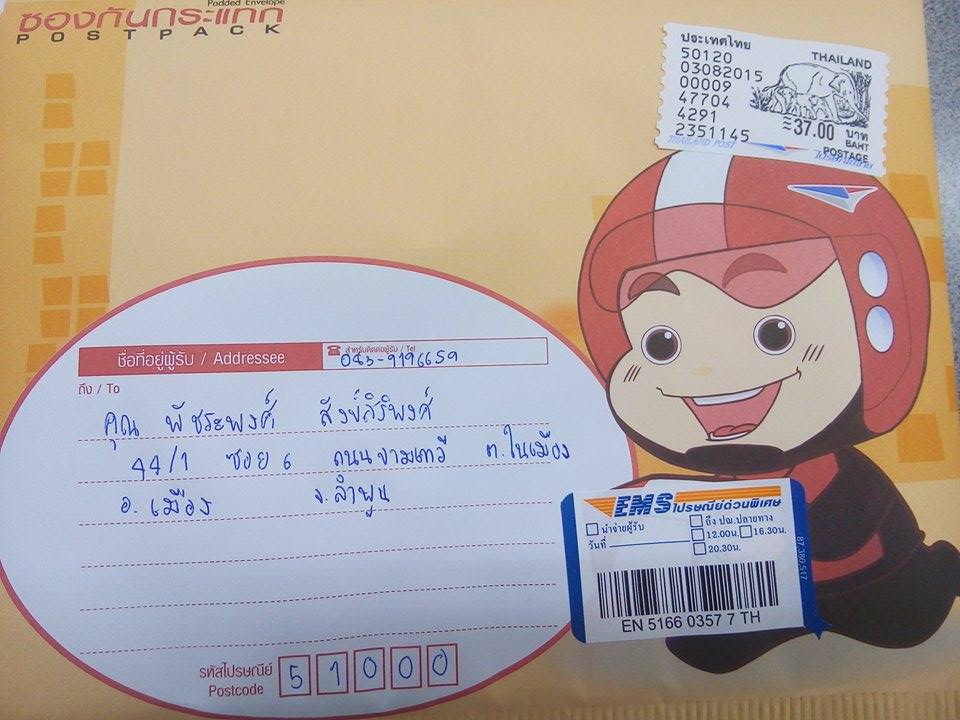 Padded Envelope
ซองกันกระแทก
POSTPACK
ประเทศไทย
THAILAND
50120
03082015
00009
47704
4291
2351145
≈37.00 บาท
BAHT
POSTAGE
THAILAND POST
ไปรษณีย์ไทย
ชื่อที่อยู่ผู้รับ / Addressee
สำหรับติดต่อผู้รับ / Tel
083-9196659
ถึง / To
คุณ พัชระพงศ์ สังข์ศิริพงศ์
44/1 ซอย 6 ถนนจามเทวี ต.ในเมือง
อ.เมือง จ.ลำพูน
รหัสไปรษณีย์
Postcode
51000
EMS ไปรษณีย์ด่วนพิเศษ
นำจ่ายผู้รับ
วันที่
ถึง ปณ.ปลายทาง
12.00น. 16.30น.
20.30น.
87.380.517
EN 5166 0357 7 TH